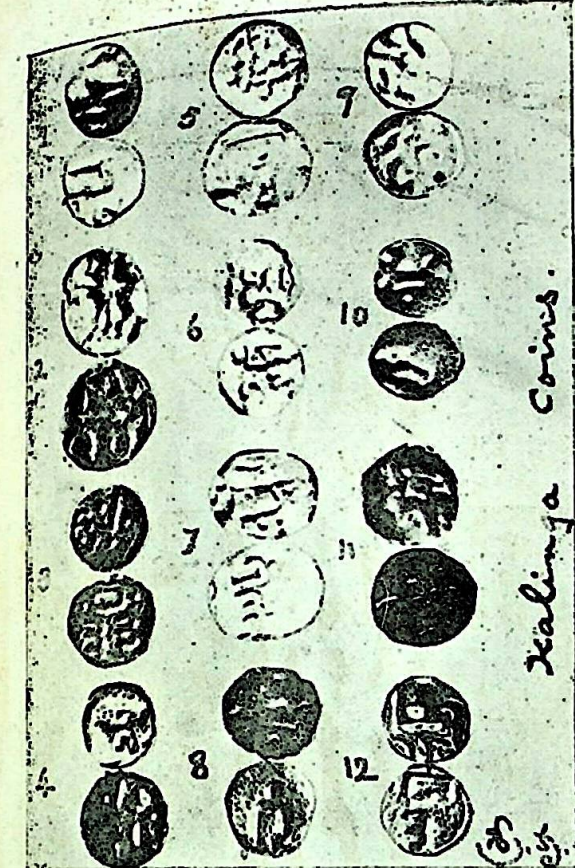 5
9
2
6
10
3
7
11
4
8
12
Kalinga Coins.